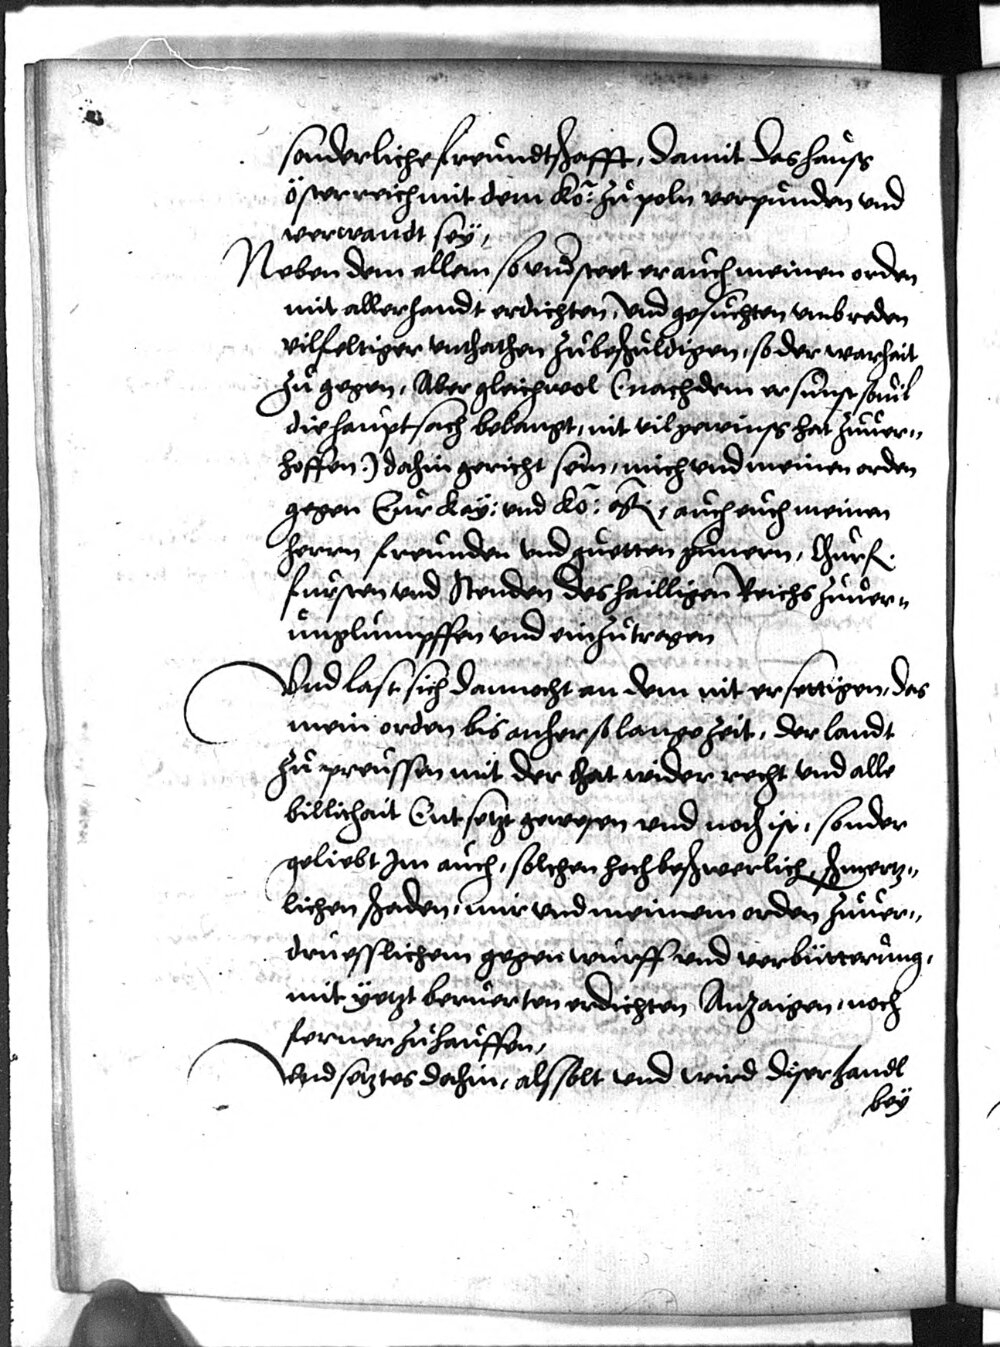 sonderliche freundtschafft, damit das hauss
österreich mit dem Kö: zu poln verpunden und
verwandt seÿ,
Neben dem allem so understeet er auch meinen orden
mit allerhandt erdichten, und gesuchten umbreden
vilfeltiger unthathen zubeschuldigen, so der warhait
zu gegen, Aber gleichwol (nachdem er sunst sovil
die hauptsach belangt, nit vil gewinss hat zuver„
hoffen:) dahin gericht sein, mich und meinen orden
gegen Eur Kaÿ: und Kö: auch euch meinen
herrn freunden und guetten gunnern, Churf.
fursten und Stenden des hailligen Reichs zuver„
unglumpffen und einzutragen
Und last sich dannocht an dem nit ersettigen, das
mein orden bis anher so lange zeit, der landt
zu preussen mit der that wider recht und alle
billichait Entsetzt gewesen und noch ist, sonder
geliebt Im auch, solchen hochbeschwerlich, schmertz„
lichen schaden, mir und meinem orden zuver„
druesslichem gegenwurff und verbütterung,
mit ÿetzt beruerten erdichten Anzaigen, noch
ferner zuhauffen,
Und setzt es dahin, als solt und wird diser handl
beÿ